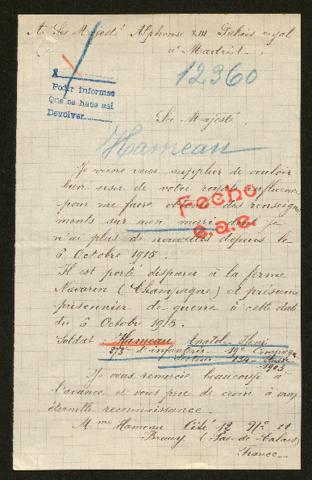 A Sa Majesté Alphonse XIII Palais royal
à Madrid
12360
Pedir informes
Que se haga asi
Devolver
Sa Majesté,
Hameau
Je viens vous supplier de vouloir
bien user de votre royale influence
pour me faire obtenir des renseigne
ments sur mon mari dont je
n'ai plus de nouvelles depuis le
6 Octobre 1915.
Fecho
Il est porté disparu à la ferme
Navarin (Champagne) et présumé
prisonnier de guerre à cette date
du 6 Octobre 1915.
Soldat Hameau
273e d'infanterie 19e Compagnie
1903
Je vous remercie beaucoup à
l'avance et vous prie de croire à mon
éternelle reconnaissance.
Mme Cité 12 No 10
Bruay (Pas-de-Calais)
France